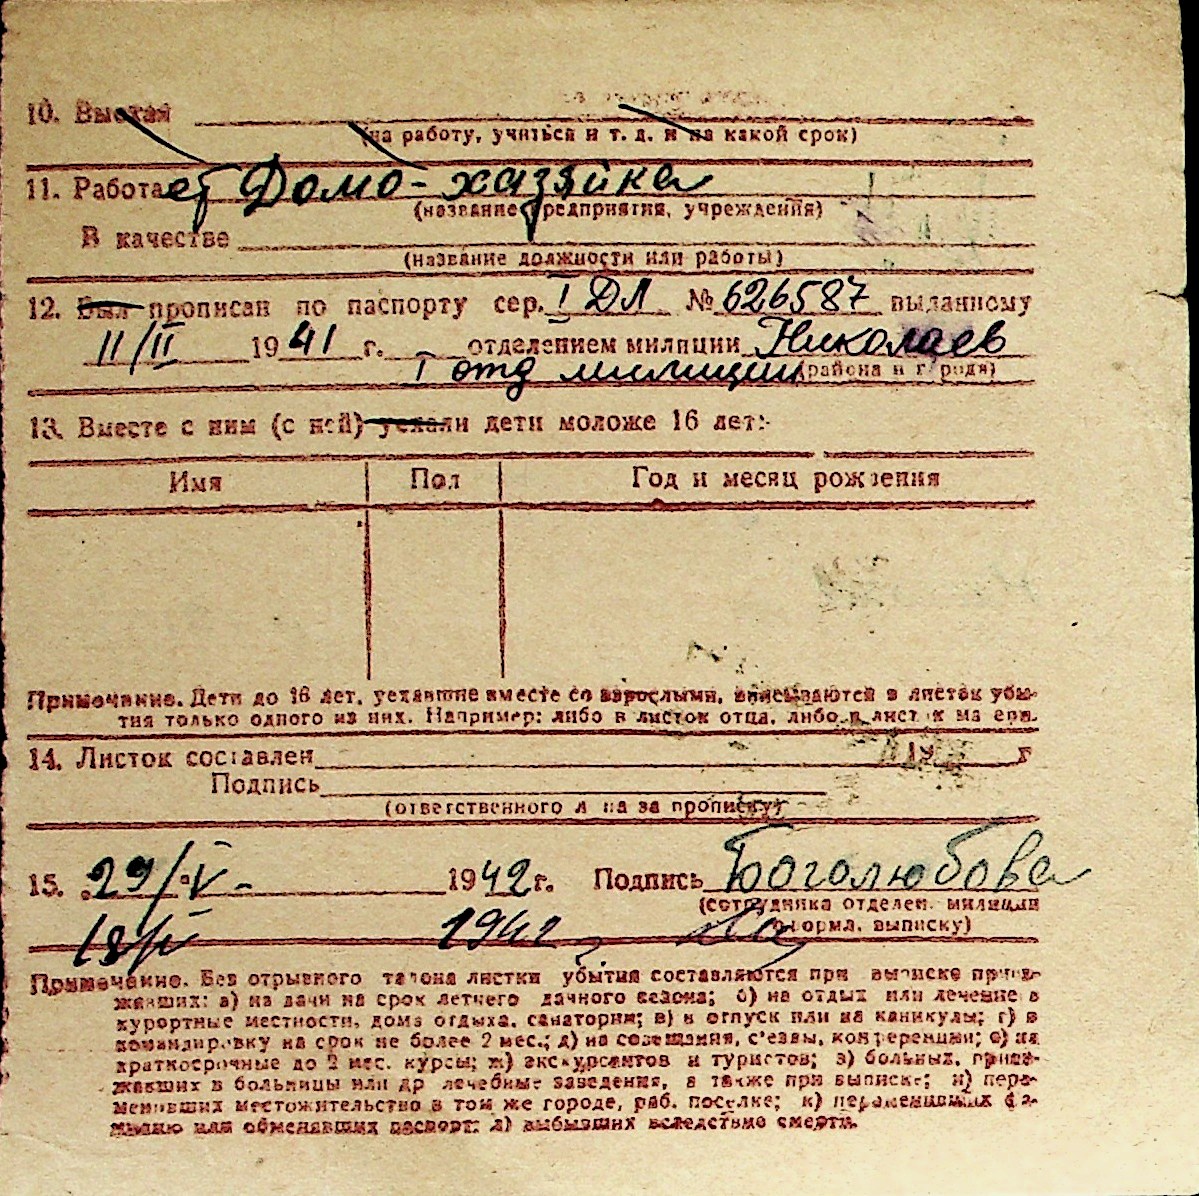 10. Выехал
(на работу, учиться и т. д. и на какой срок)
11. Работает Домо-хазяйка
(название предприятия, учреждения)
В качестве
(название должности или работы)
12. Был прописан по паспорту сер. I ДЛ № 626587 выданному
11/II 1941 г. отделением милиции Николаев
I отд милиции (района и города)
13. Вместе с ним (с ней) уехали дети моложе 16 лет:-
Имя Пол Год и месяц рождения
Примечание. Дети до 16 лет, уехавшие вместе со взрослыми, вписываются в листок убы-
тия только одного из них. Например: либо в листок отца, либо в листок матери.
14. Листок составлен 19 г
Подпись
(ответственного лица за прописку)
15. 29/V- 1942 г. Подпись Боголюбова
(сотрудника отделен. милиции
оформл. выписку)
18/V 1942
Примечание. Без отрывного талона листки убытия составляются при выписке приез-
жавших: а) на дачи на срок летнего дачного сезона; б) на отдых или лечение в
курортные местности, дома отдыха, санатории; в) в отпуск или на каникулы; г) в
командировку на срок не более 2 мес.; д) на совещания, с'езды, конференции; е) на
краткосрочные до 2 мес. курсы; ж) экскурсантов и туристов; з) больных, приез-
жавших в больницы или др лечебные заведения, а также при выписке; и) пере-
менивших местожительство в том же городе, раб. поселке; к) переменивших фа-
милию или обменявших паспорт; л) выбывших вследствие смерти.